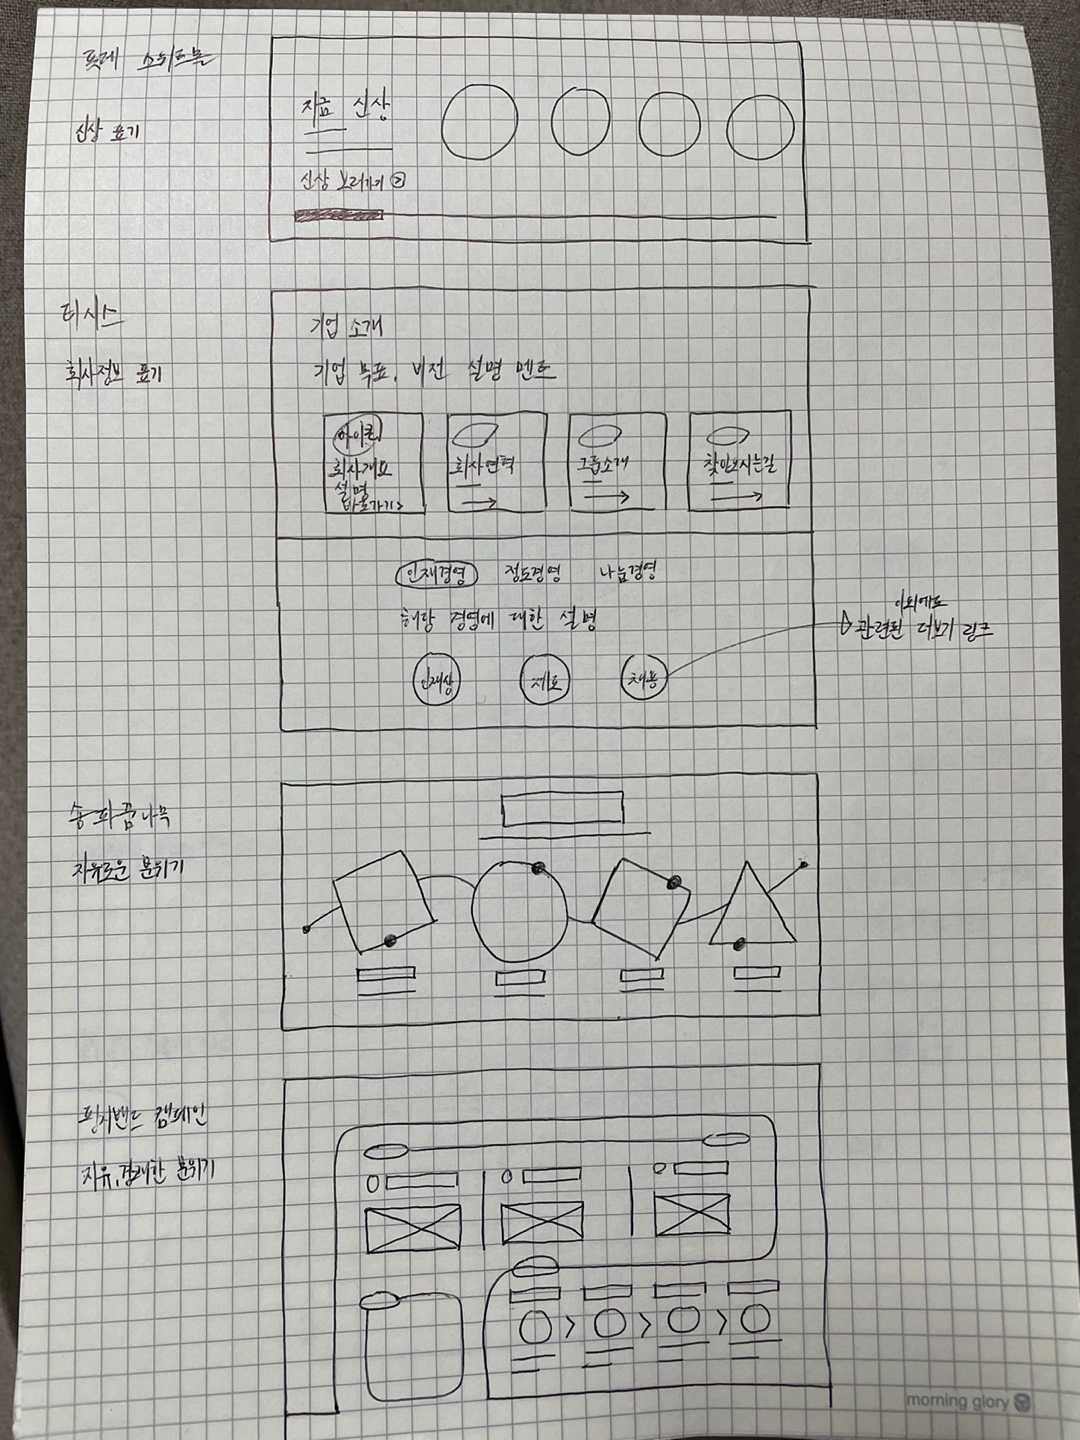 신상 표기
지금 신상
신상 보러가기
티시스
회사정보 표기
기업 소개
기업 목표, 비전 설명 멘트
아이콘
회사개요
설명
바로가기 >
회사연혁
그룹소개
찾아오시는길
인재경영 정도경영 나눔경영
해당 경영에 대한 설명
이외에도
관련된 더보기 링크
인재상
제보
채용
송파꿈나무
자유로운 분위기
핑커밴드 캠페인
자유, 경쾌한 분위기
morning glory